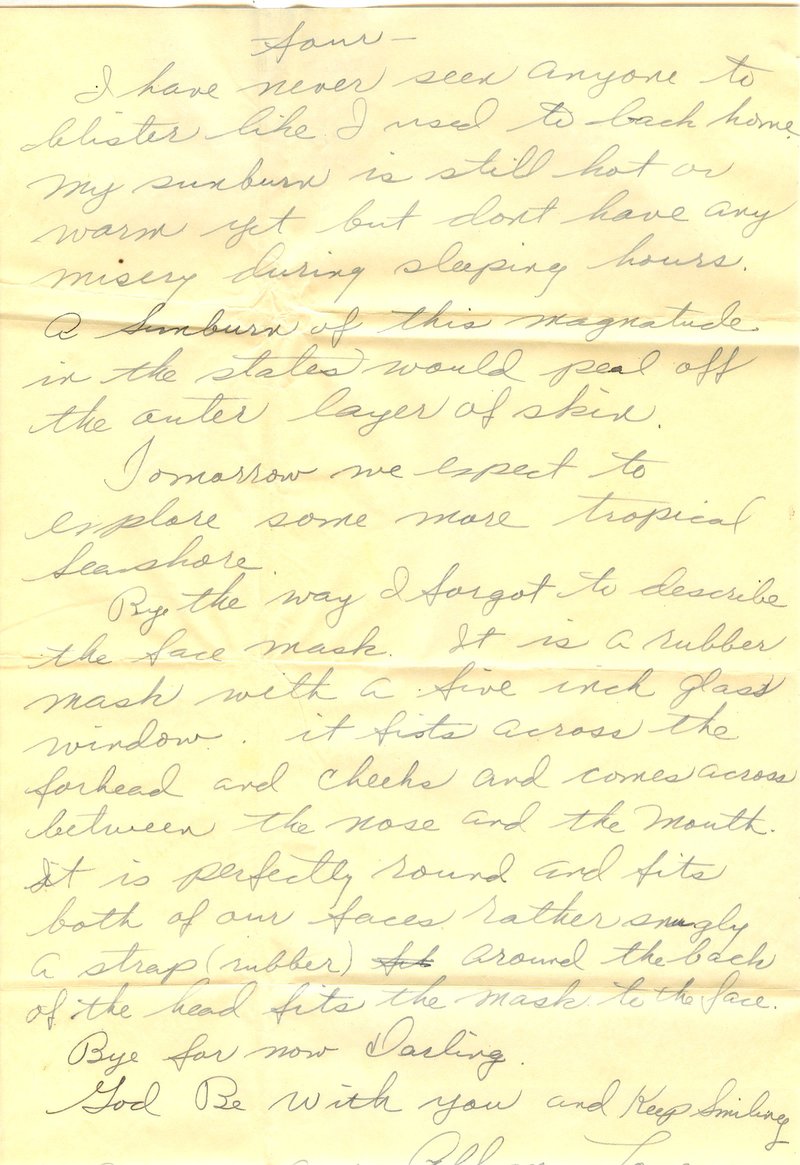 -four-
I have never seen anyone to
blister like I used to back home.
My sunburn is still hot or
warm yet but dont have any
misery during sleeping hours.
a sunburn of this magnatude
in the states would peal off
the outer layer of skin.
Tomorrow we expect to
explore some more tropical
seashore
Bye the way I forgot to describe
the face mask. It is a rubber
mask with a five inch glass
window. it fists across the
forhead and cheeks and comes across
between the nose and the mouth.
it is perfectly round and fits
both of our faces rather snugly
a strap (rubber) around the back
of the head fits the mask to the face.
Bye for now Darling.
God Be With you and Keep Smiling
All